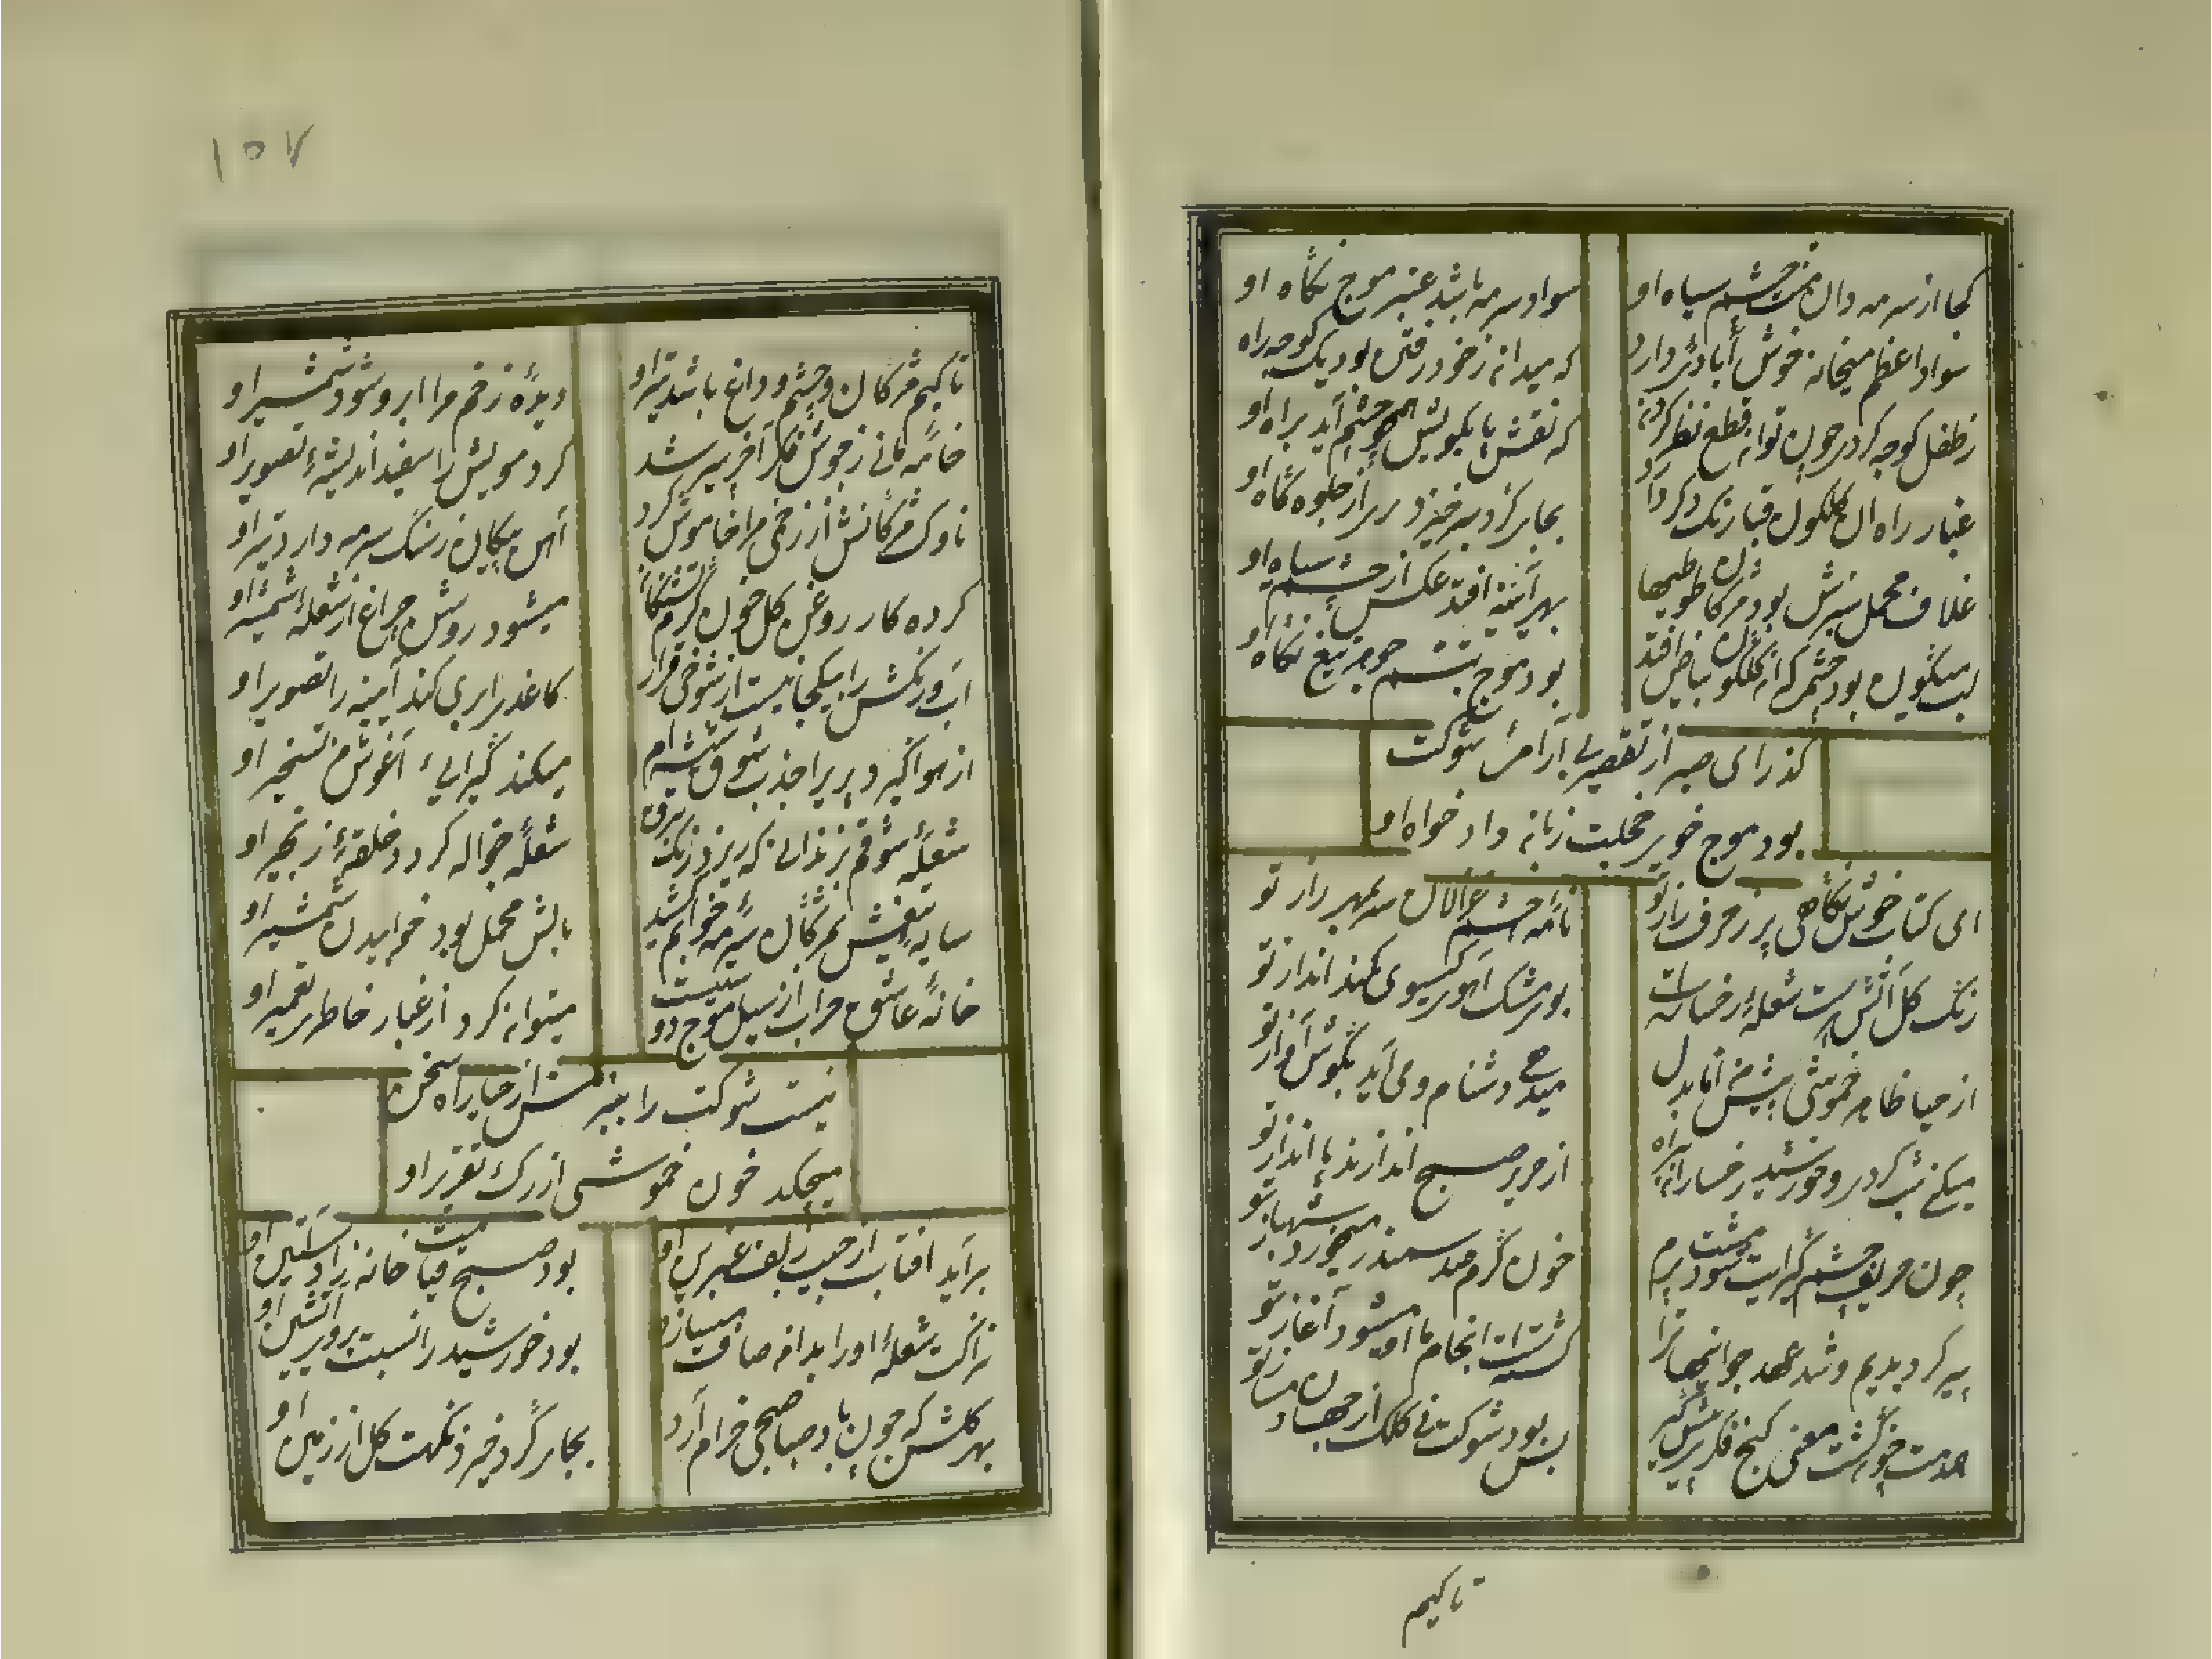 کجا از سرمه دان منت چشم سیاه او
سواد سرمه باشد عنبر موج نگاه او
سواد اعظم میخانه خوش آبادئی دارد
که میدانی ز خود رفتن بود یک کوچه راه او
ز طفل کوچه کردی چون توان قطع نظر کردن
که نقش پا بکویش همچو چشم آید براه او
غبار راه آن گلگون قبا رنگ دگر دارد
بجای گرد میخیزد پری از جلوه گاه او
غلاف مخمل سبزش بود مژگان طوطیها
بهر آئینه افتد عکس از چشم سیاه او
لب میگون بود چشمی که آن گلگون بیاض افتد
بود موج تبسم جوهر تیغ نگاه او
گذر ای صبر از تقصیر بی آرامی شوکت
بود موج خوی خجلت زبان داد خواه او
ای کتاب خوش نگاهی پر ز حرف راز تو
نامه چشم غزالان سر بمهر راز تو
رنگ گل آتش پرست شعلهٔ رخسار تست
بوی مشک آهوی گیسوی کمند انداز تو
از حیا ظاهر خموشی پیش من اما بدل
میدهی دشنام و می آید بگوش آواز تو
میکنی شب گردی و خورشید رخساران براه
از حریر صبح اندازند پا انداز تو
چون حریف چشم گیرایت شود مشت پرم
خون گرم صد سمندر میخورد شهباز تو
پیر گردیدیم و شد عهد جوانیها ترا
گشت انجام ما و میشود آغاز تو
همت خود گشت معنی گنج فکری پیش گیر
بس بود شوکت نی کلک از جهان دمساز تو
تاکیم
۱۵۷
تاکیم مژگان و چشم و داغ باشد تیر او
دیدهٔ زخم مرا ابرو شود شمشیر او
خامه مانی ز جوش فکر آخر پیر شد
کرد مویش را سفید اندیشهٔ تصویر او
ناوک مژگانش از زخمی مرا خاموش کرد
آهن پیکان ز سنگ سرمه دارد تیر او
کرده کار روغن گل خون گرم کشتگان
میشود روشن چراغ از شعلهٔ شمشیر او
آب و رنگش را بیکجا نیست از شوخی قرار
کاغذ ابری کند آیینه را تصویر او
از هوا گیرد پریرا جذب شوق شیشه ام
میکند گیرایی آغوش من تسخیر او
شعلهٔ شوقم بزندانی که ریزد رنگ برق
شعلهٔ جواله گردد حلقهٔ زنجیر او
سایه تیغش بمژگان سرمه خوابم کشید
بالش مخمل بود خوابیدن شمشیر او
خانهٔ عاشق خراب از سیل موج دود نیست
میتوان کرد از غبار خاطری تعمیر او
نیست شوکت را بغیر از حیا راه سخن
میچکد خون خموشی از رگ تقریر او
برآید آفتاب از جیب زلف عنبرین او
بود صبح قیامت خانه زاد آستین او
نزاکت شعلهٔ او را بدامن صاف میسازد
بود خورشید را نسبت بروی آتشین او
بهر گلشن که چون باد صبا صبحی خرام آرد
بجای گرد خیزد نکهت گل از زمین او